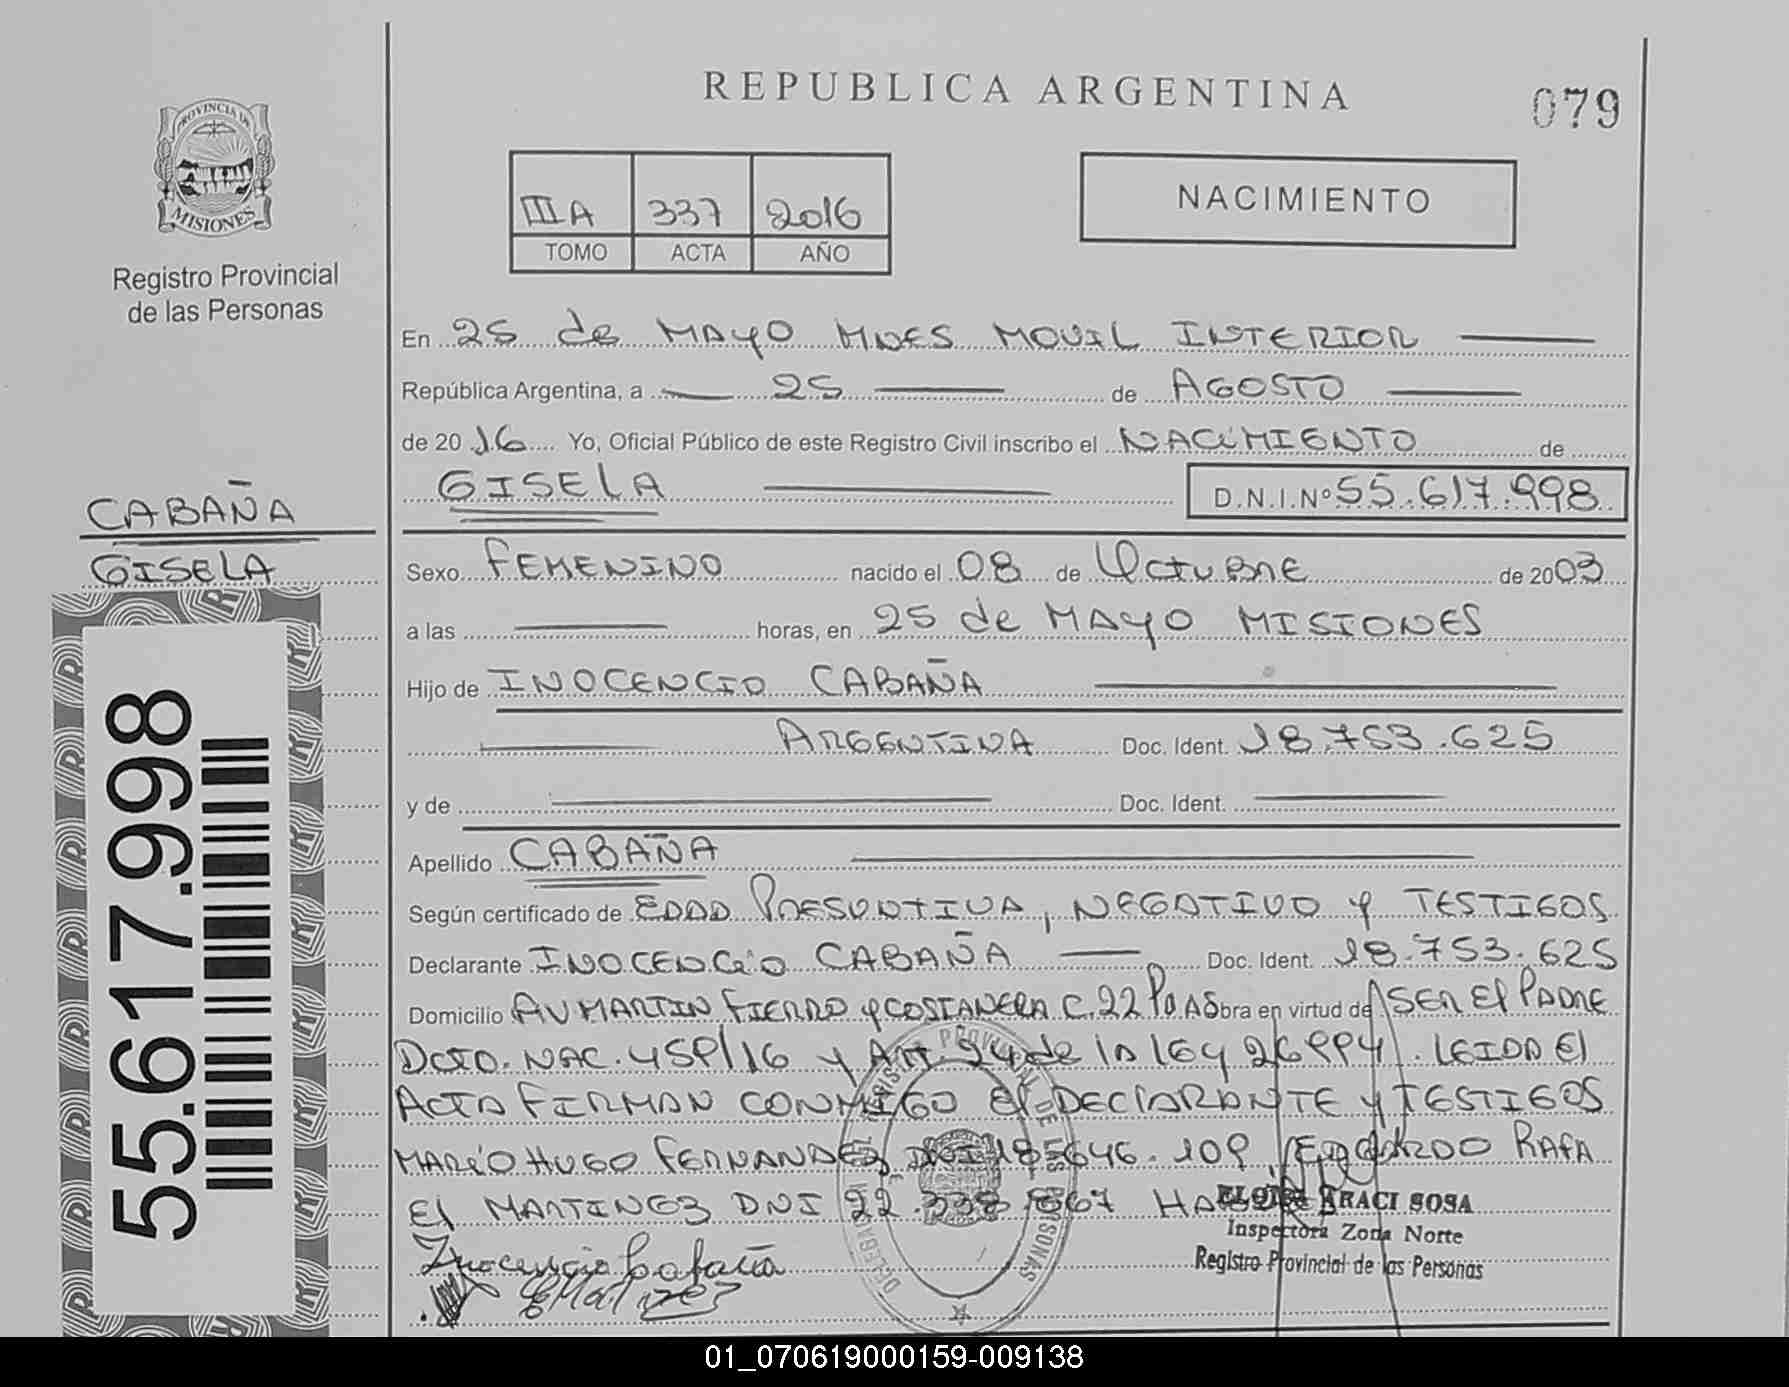 REPUBLICA ARGENTINA
079
PROVINCIA DE
MISIONES
Registro Provincial
de las Personas
III A 337 2016
TOMO ACTA AÑO
NACIMIENTO
En 25 de MAYO MNES MOVIL INTERIOR
República Argentina, a 25 de AGOSTO
de 20 16 Yo, Oficial Público de este Registro Civil inscribo el NACIMIENTO de
GISELA D.N.I.Nº 55.617.998
CABAÑA
GISELA
Sexo FEMENINO nacido el 08 de Octubre de 2003
a las horas, en 25 de MAYO MISIONES
Hijo de INOCENCIO CABAÑA
ARGENTINA Doc. Ident. 18.753.625
y de Doc. Ident.
Apellido CABAÑA
Según certificado de EDAD PRESUNTIVA, NEGATIVO y TESTIGOS
Declarante INOCENCIO CABAÑA Doc. Ident. 18.753.625
Domicilio AV MARTIN FIERRO y COSTANERA C.22 Pdas Obra en virtud de SER El PADRE
DCTO. NAC. 459/16 y Art. 24 de la ley 26994. LEIDA El
ACTA FIRMAN CONMIGO El DEClARANTE y TESTIGOS
MARIO HUGO FERNANDEZ DNI 18.646.109, EDGARDO RAFA
El MARTINEZ DNI 22.338.867
Inocencio Cabaña
ARACI SOSA
Inspectora Zona Norte
Registro Provincial de las Personas
55.617.998
01_070619000159-009138